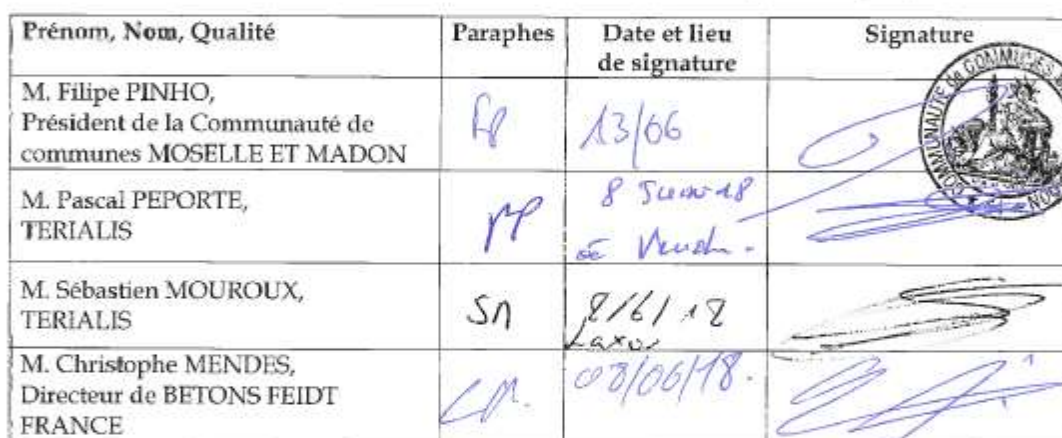 Prénom, Nom, Qualité Paraphes Date et lieu Signature
de signature
M. Filipe PINHO,
Président de la Communauté de
communes MOSELLE ET MADON
FP 13/06
COMMUNAUTÉ de COMMUNES
M. Pascal PEPORTE,
TERIALIS
PP 8 Juin 18
M. Sébastien MOUROUX,
TERIALIS
SM 8/6/18
Laxou
M. Christophe MENDES,
Directeur de BETONS FEIDT
FRANCE
CM. 08/06/18.